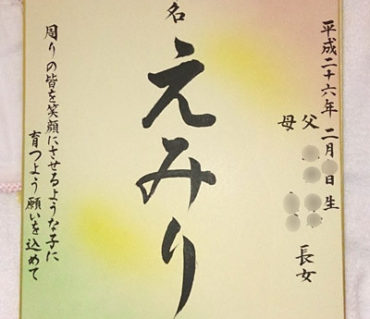 平成二十六年 二月 日生
父
母
長女
名
えみり
周りの皆を笑顔にさせるような子に
育つよう願いを込めて